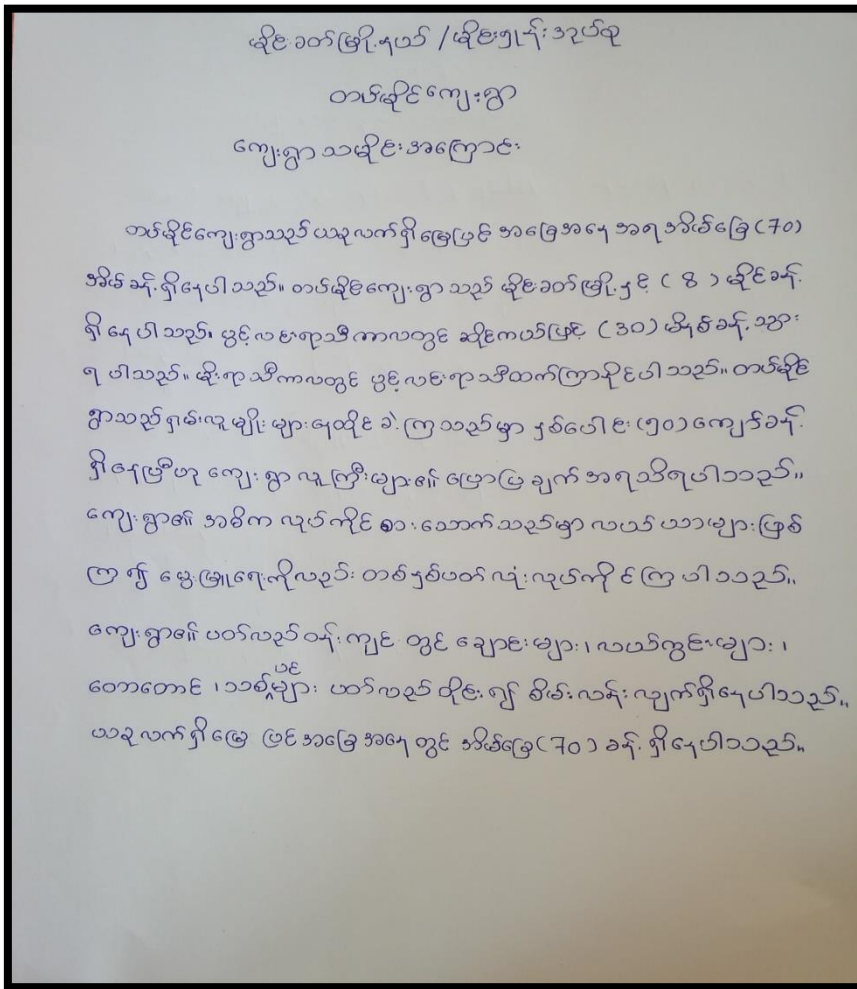 မိုင်းခတ်မြို့နယ် /မိုင်းရှုန်းအုပ်စု
တပ်မိုင်ကျေးရွာ
ကျေးရွာသမိုင်းအကြောင်း
တပ်မိုင်ကျေးရွာသည် ယခုလက်ရှိမြေပြင် အခြေအနေ အရ အိမ်ခြေ(70)
အိမ်ခန့်ရှိနေပါသည်။ တပ်မိုင်ကျေးရွာသည် မိုင်းခတ်မြို့နှင့် ( 8 ) မိုင်ခန့်
ရှိနေပါသည်။ ပွင့်လင်းရာသီကာလတွင် ဆိုင်ကယ်ဖြင့် (30) မိနစ်ခန့်သွား
ရပါသည်။ မိုးရာသီကာလတွင် ပွင့်လင်းရာသီထက်ကြာနိုင်ပါသည်။ တပ်မိုင်
ရွာသည်ရှမ်းလူမျိုးများနေထိုင်ခဲ့ကြသည်မှာ နှစ်ပေါင်း(၅၀)ကျော်ခန့်
ရှိနေပြီဟု ကျေးရွာလူကြီးများ၏ ပြောပြချက်အရသိရပါသည်။
ကျေးရွာ၏ အဓိက လုပ်ကိုင်စားသောက်သည်မှာ လယ်ယာများဖြစ်
ကြ၍ မွေးမြူရေးကိုလည်း တစ်နှစ်ပတ်လုံးလုပ်ကိုင်ကြပါသည်။
ကျေးရွာ၏ ပတ်လည်ဝန်းကျင် တွင် ချောင်းများ၊လယ်ကွင်းများ၊
တောတောင် ၊သစ်ပင်များ ပတ်လည်ဝိုင်း၍ စိမ်းလန်းလျက်ရှိနေပါသည်။
ယခုလက်ရှိမြေပြင်အခြေအနေတွင် အိမ်ခြေ(70)ခန့်ရှိနေပါသည်။